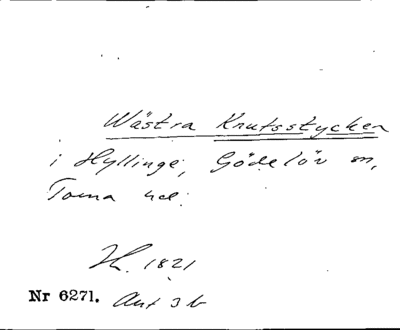 Wästra Knutsstycken
i Hyllinge, Gödelöv sn,
Torna hd.
H. 1821
Nr 6271. Avs 3 b